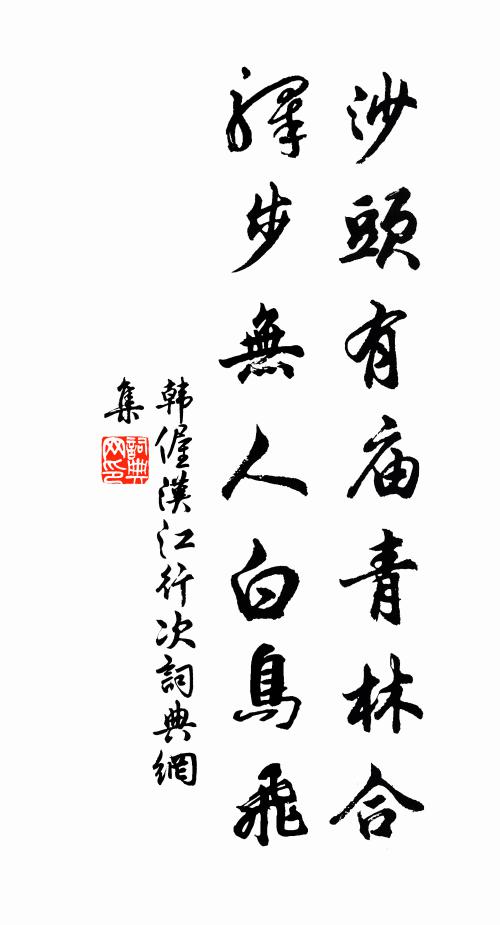 沙頭有庙青林合
驛步無人白鳥飛
韩偓漢江行次詞典網
集
詞典
网印